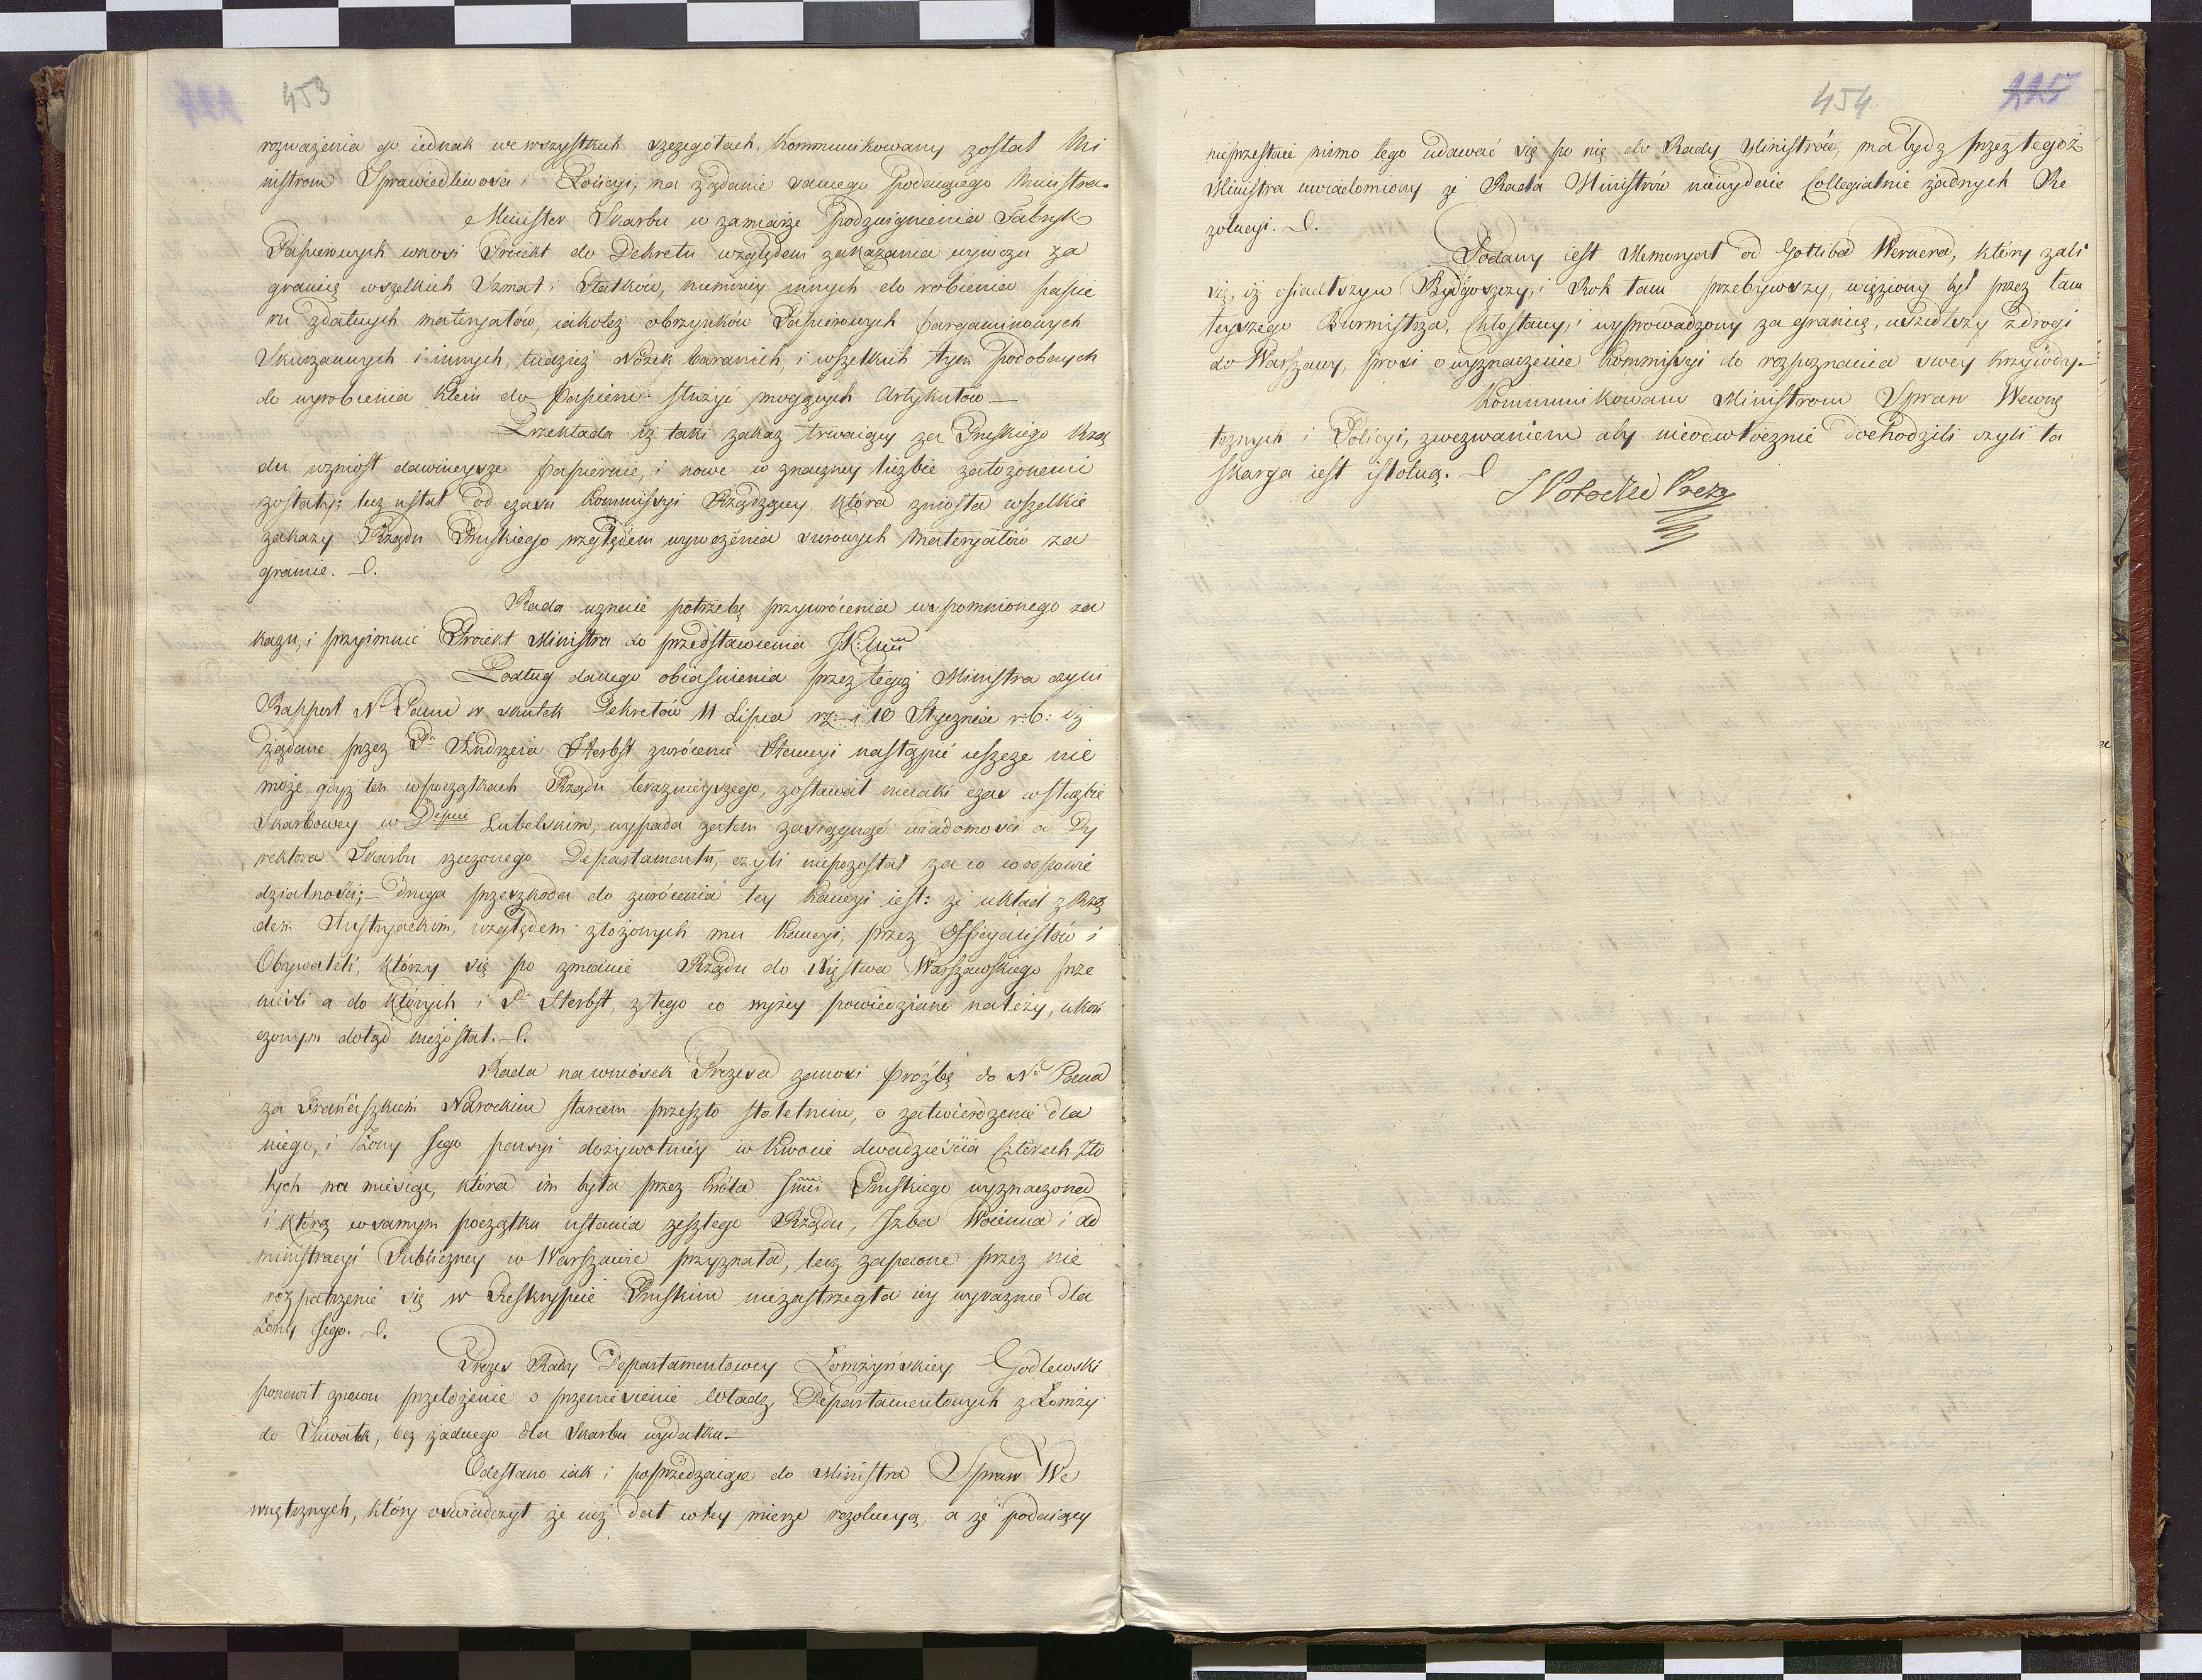 453
rozważenia go iednak we wszystkich szczegółach, kommunikowany został Mi
nistrom Sprawiedliwości i Policyi, na żądanie samego podaiącego Ministra.
Minister Skarbu w zamiarze podzwignienia Fabryk
Papierowych wnosi Proiekt do Dekretu względem zakazania wywozu za
granicę wszelkich Szmat i Płatków, niemniey innych do robienia papie
ru zdatnych materyałów, iakoteż obrzynków Papierowych pargaminowych
Skurzannych i innych, tudzież Nóżek baranich, i wszelkich tym podobnych
do wyrobienia kleiu do papieru służyć mogących Artykułów.—
Przekłada iż taki zakaz trwaiący za Pruskiego Rzą
du wzniosł dawnieysze papiernie, i nowe w znaczney liczbie założonemi
zostały; lecz ustał od czasu Kommissyi Rządzącey, która zniosła wszelkie
zakazy Rządu Pruskiego względem wywożenia surowych Materyałów za
granice. —
Rada uznaie potrzebę przywrócenia wspomnionego za
kazu, i przyimuie Proiekt Ministra do przedstawienia
Podług danego obiaśnienia przez tegoż Ministra czyni
Rapport No Panu w skutek Dekretów 11 Lipca rz: i 10 Stycznia r: b: iż
żądane przez Pa Andrzeia Herbst zwrócenie Kaucyi nastąpić ieszcze nie
może, gdyż ten w początkach Rządu teraznieyszego, zostawał nieiaki czas w służbie
Skarbowey w Depcie Lubelskim, wypada zatem zasięgnąć wiadomości od Dy
rektora Skarbu rzeczonego Departamentu, czyli niepozostał za co w odpowie
dzialności; — druga przeszkoda do zwrócenia tey Kaucyi iest: że układ z Rzą
dem Austryackim, względem złożonych mu Kaucyi, przez Officyalistów i
Obywateli, którzy się po zmianie Rządu do Xięstwa Warszawskiego prze
nieśli a do których i P. Herbst, z tego co wyżey powiedziano należy, ukoń
czonym dotąd niezostał. —
Rada na wniosek Prezesa zanosi proźbę do No Pana
za Franciszkiem Narockim starcem przeszło stoletnim, o zatwierdzenie dla
niego, i Żony Jego pensyi dożywotniey w kwocie dwadzieścia czterech Zło
tych na miesiąc, która im była przez Króla Jmci Pruskiego wyznaczona
i którą w samym początku ustania zeszłego Rządu, Izba Woienna i ad
ministracyi Publiczney w Warszawie przyznała, lecz zapewne przez nie
rozpatrzenie się w Reskrypcie Pruskim niezastrzegła iey wyraznie dla
Żony Jego. —
Prezes Rady Departamentowey Łomżyńskiey Godlewski
ponowił znowu przełożenie o przeniesienie Władz Departamentowych z Łomży
do Suwałk, bez żadnego dla Skarbu wydatku.—
Odesłano iak i poprzedzaiące do Ministra Spraw We
wnętrznych, który oswiadczył że iuż dał w tey mierze rezolucyą, a że podaiący
454 225
nieprzestaie mimo tego udawać się po nię do Rady Ministrów, ma bydz przez tegoż
Ministra uwiadomiony że Rada Ministrów niewydaie Collegialnie żadnych Re
zolucyi. —
Podany iest Memoryał od Gotliba Wernera, który żali
się, iż osiadłszy w Bydgoszczy, i Rok tam przebywszy, więziony był przez tam
teyszego Burmistrza, Chłostany, i wyprowadzony za granicę, uszedłszy z drogi
do Warszawy, prosi o wyznaczenie Kommissyi do rozpoznania swey krzywdy.—
Kommunikowano Ministrom Spraw Wewnę
trznych i Policyi, z wezwaniem aby nieodwłocznie dochodzili czyli ta
skarga iest istotną. —
S Potocki Prezes